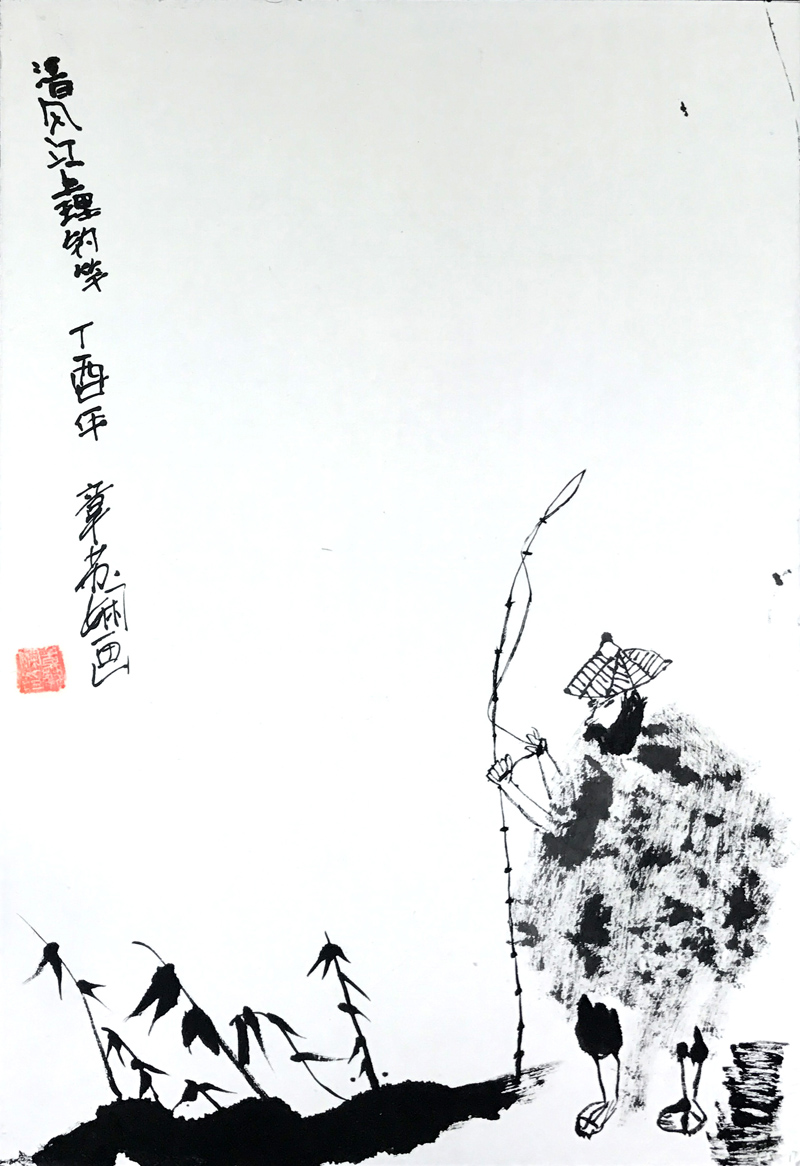 清风江上理钓竿 丁酉年 章苏娴画